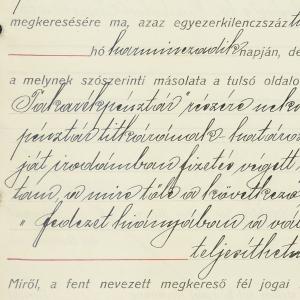 megkeresésére ma, azaz egyezerkilenczszáz
hó harminczadik napján, de
a melynek szószerinti másolata a tulsó oldalo
Takarékpénztár" részére nek
pénztár titkárának határo
ját irodámban fizetés végett
tam, a mire tőle a következő
„ fedezet hiányában a vá
teljesíthet
Miről, a fent nevezett megkereső fél jogai